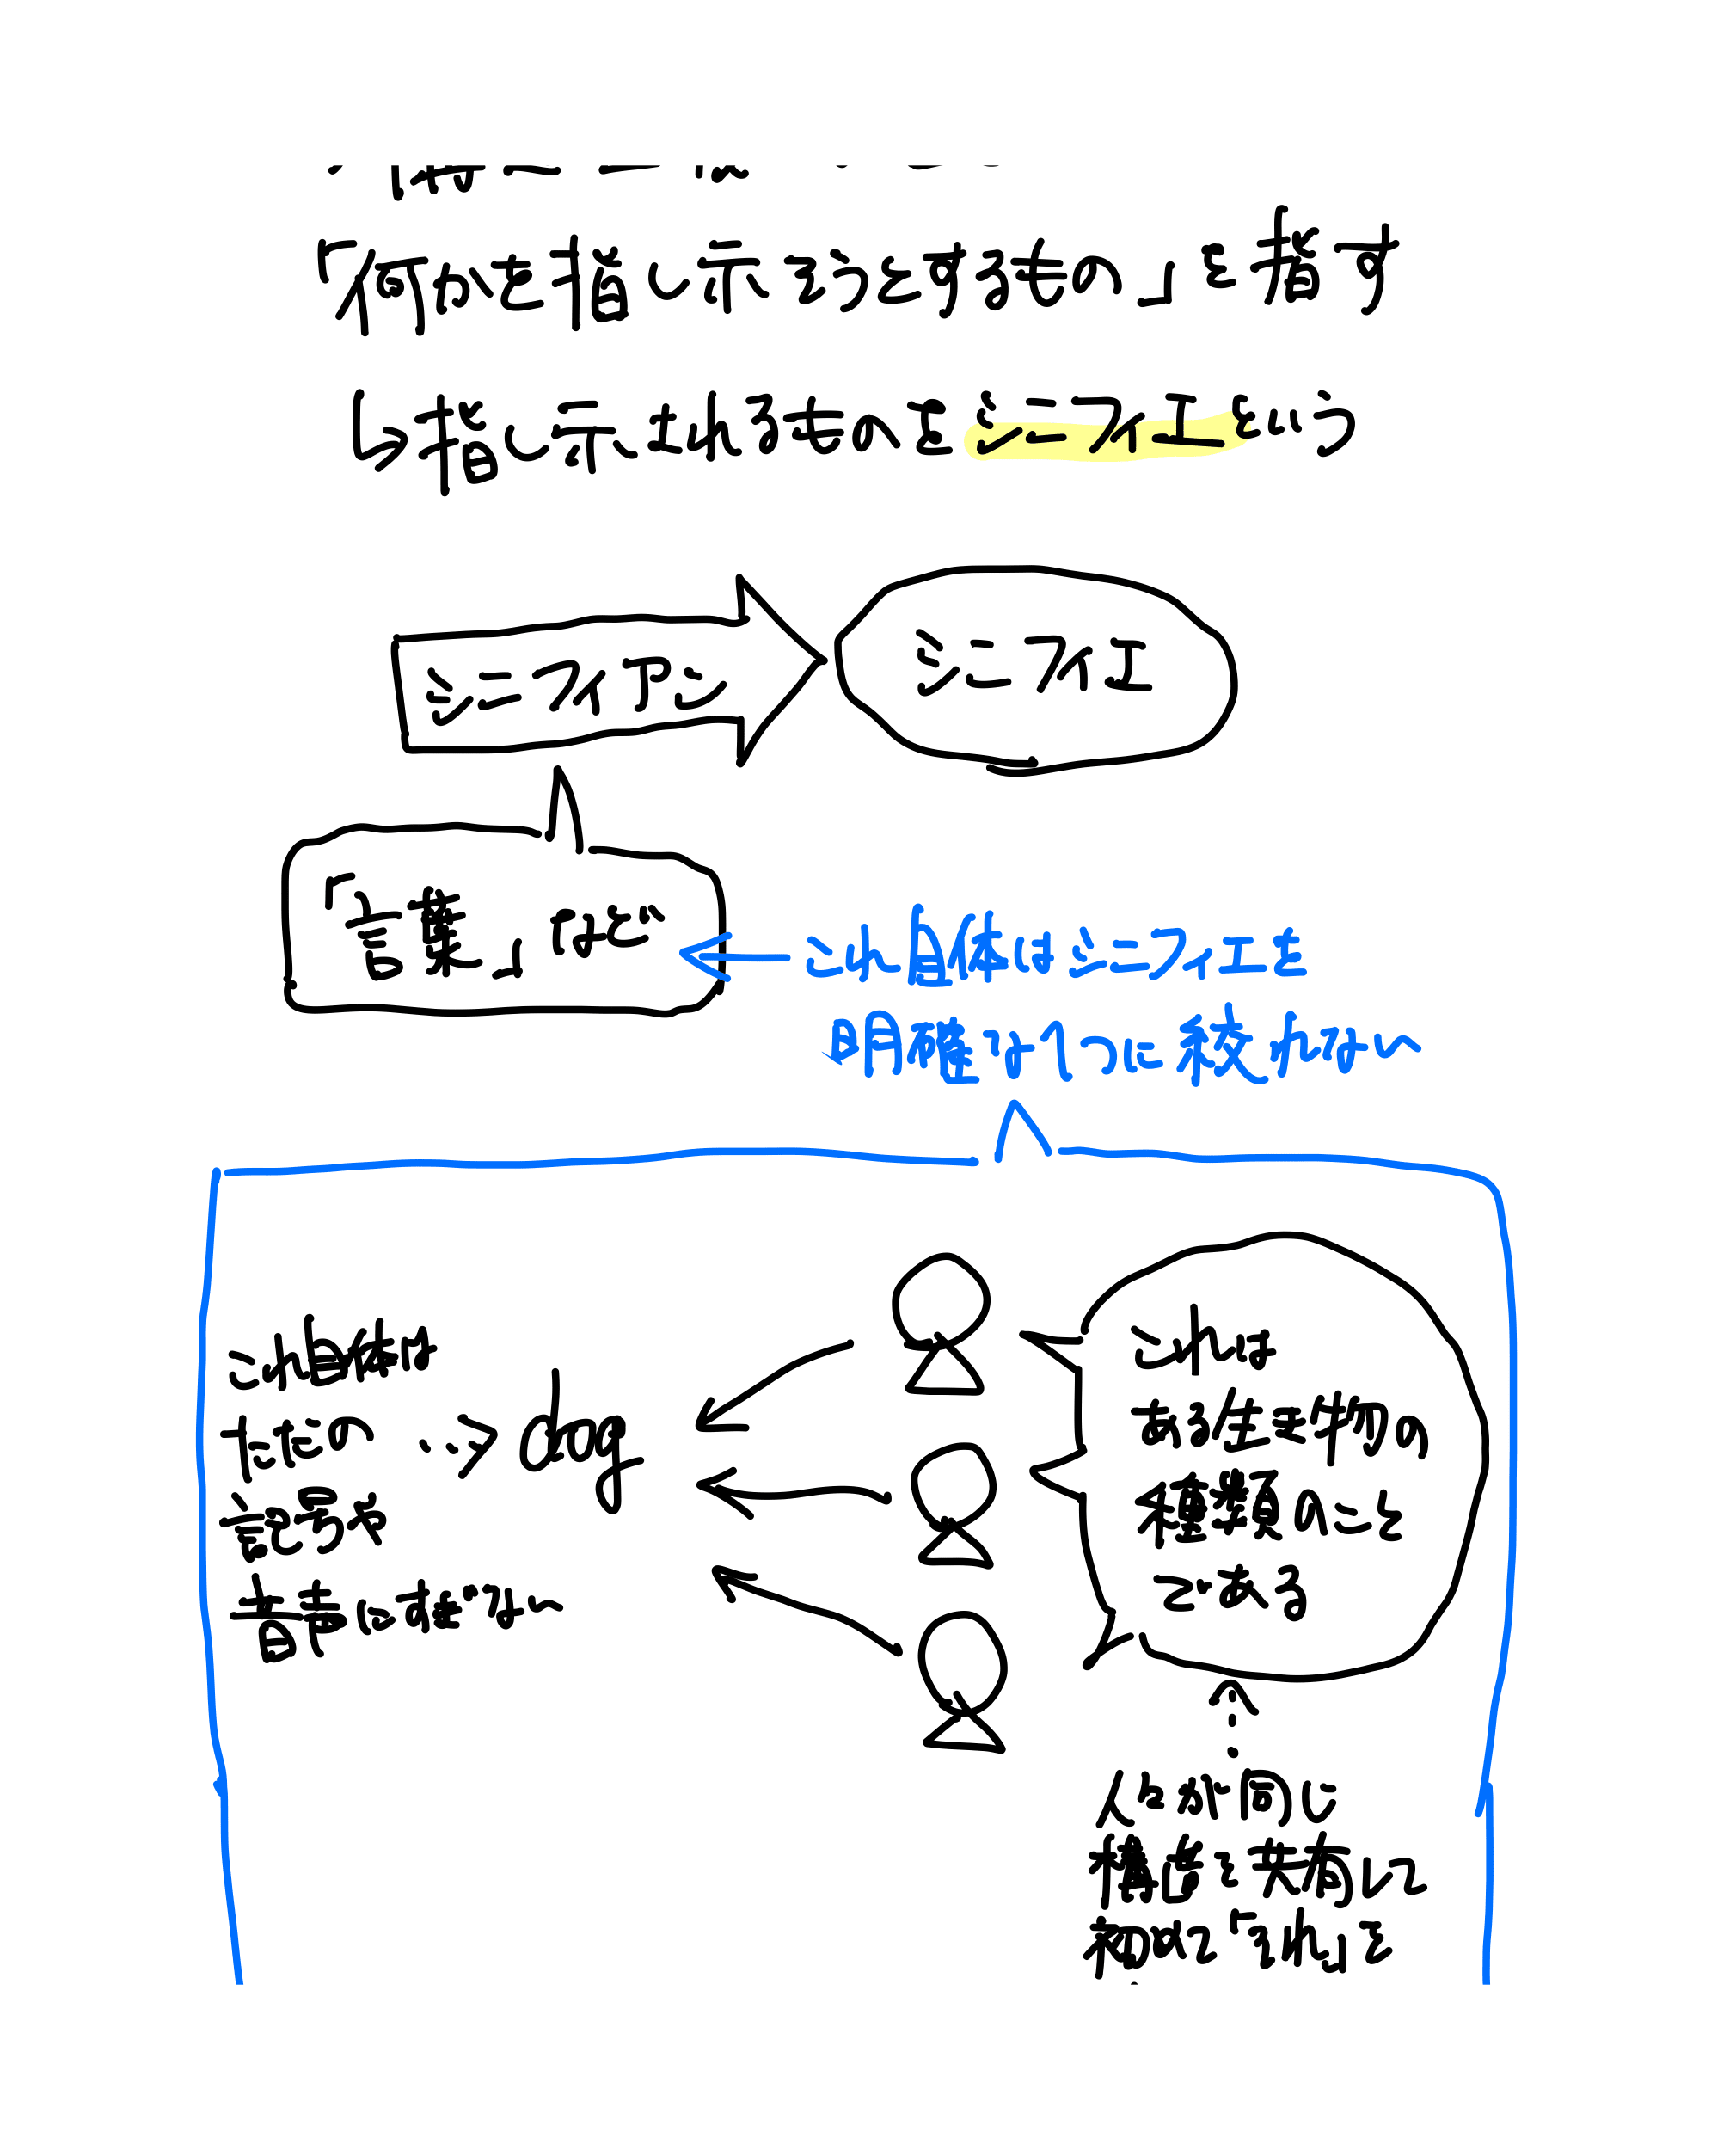 「何かを指し示そうとするもの」を指す
↳指し示されるものをシニフィエという
シニフィアン
シニフィエ
「言葉」など
これ自体はシニフィエを
明確な1つに絞れない
これ自体は
ただの
記号や
音声に過ぎない
dog
これは
ある生き物の
種類のこと
である
人々が同じ
構造を共有して
初めて「それ」を